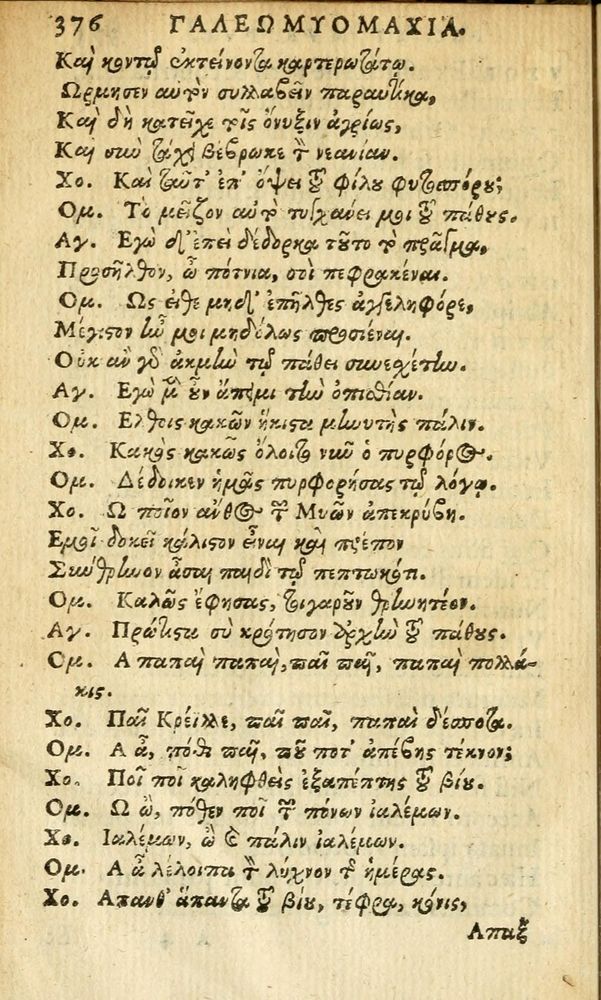 376 ΓΑΛΕΩΜΥΟΜΑΧΙΑ.
Καὶ κοντῷ ἐκτείνοντα καρτερωτάτῳ.
Ωρμησεν αὐτὸν συλλαβεῖν παραυτίκα,
Καὶ δὴ κατεῖχε τοῖς ὄνυξιν ἀγρίως,
Καὶ σιωὺ τάχει βέβρωκε τὸν νεανίαν.
Χο. Καὶ ταῦτ' ἐπ' ὄψει τοῦ φίλου φυτοσπόρου;
Ομ. Τὸ μεῖζον αὐτὸ τυγχάνει μοι τοῦ πάθους.
Αγ. Εγὼ δ' ἐπεὶ δέδορκα τοῦτο τὸ πρᾶγμα,
Προσῆλθον, ὦ πότνια, σοὶ πεφρακέναι.
Ομ. Ως εἴθε μηδ' ἐπῆλθες ἀγγεληφόρε,
Μέγιστον ἦν μοι μηδόλως προσιέναι.
Οὐκ ἂν γὰρ ἀκμὴν τῷ πάθει συνεχέτην.
Αγ. Εγὼ μὲν οὖν ἄπειμι τὴν ὀπισθίαν.
Ομ. Ελθοις κακῶν ἥκιστα μηνυτὴς πάλιν.
Χο. Κακὸς κακῶς ὄλοιτο νῦν ὁ πυρφόρος.
Ομ. Δέδοικεν ἡμᾶς πυρφορήσας τῷ λόγῳ.
Χο. Ω ποῖον ἄνθος τῶν Μυῶν ἀπεκρύβη.
Εμοὶ δοκεῖ κάλιστον εἶναι καὶ πρέπον
Σύνθρηνον ᾆσαι παιδὶ τῷ πεπτωκότι.
Ομ. Καλῶς ἔφησας, τοιγαροῦν θρηνητέον.
Αγ. Πρώτιστα σὺ κρότησον ἀρχὴν τοῦ πάθους.
Ομ. Α παπαὶ παπαὶ, παῖ παῖ, παπαὶ πολλά-
κις.
Χο. Παῖ Κρέϊλλε, παῖ παῖ, παπαὶ δέσποτα.
Ομ. Α ἆ, πόθι παῖ, ποῦ ποτ' ἀπέβης τέκνον;
Χο. Ποῖ ποῖ καληφθεὶς ἐξαπέπτης τοῦ βίου.
Ομ. Ω ὢ, πόθεν ποῖ τῶν πόνων ἰαλέμων.
Χο. Ιαλέμων, ὢ καὶ πάλιν ἰαλέμων.
Ομ. Α ἆ λέλοιπα τὸν λύχνον τῆς ἡμέρας.
Χο. Απανθ' ἅπαντα τοῦ βίου, τέφρα, κόνις,
Απαξ